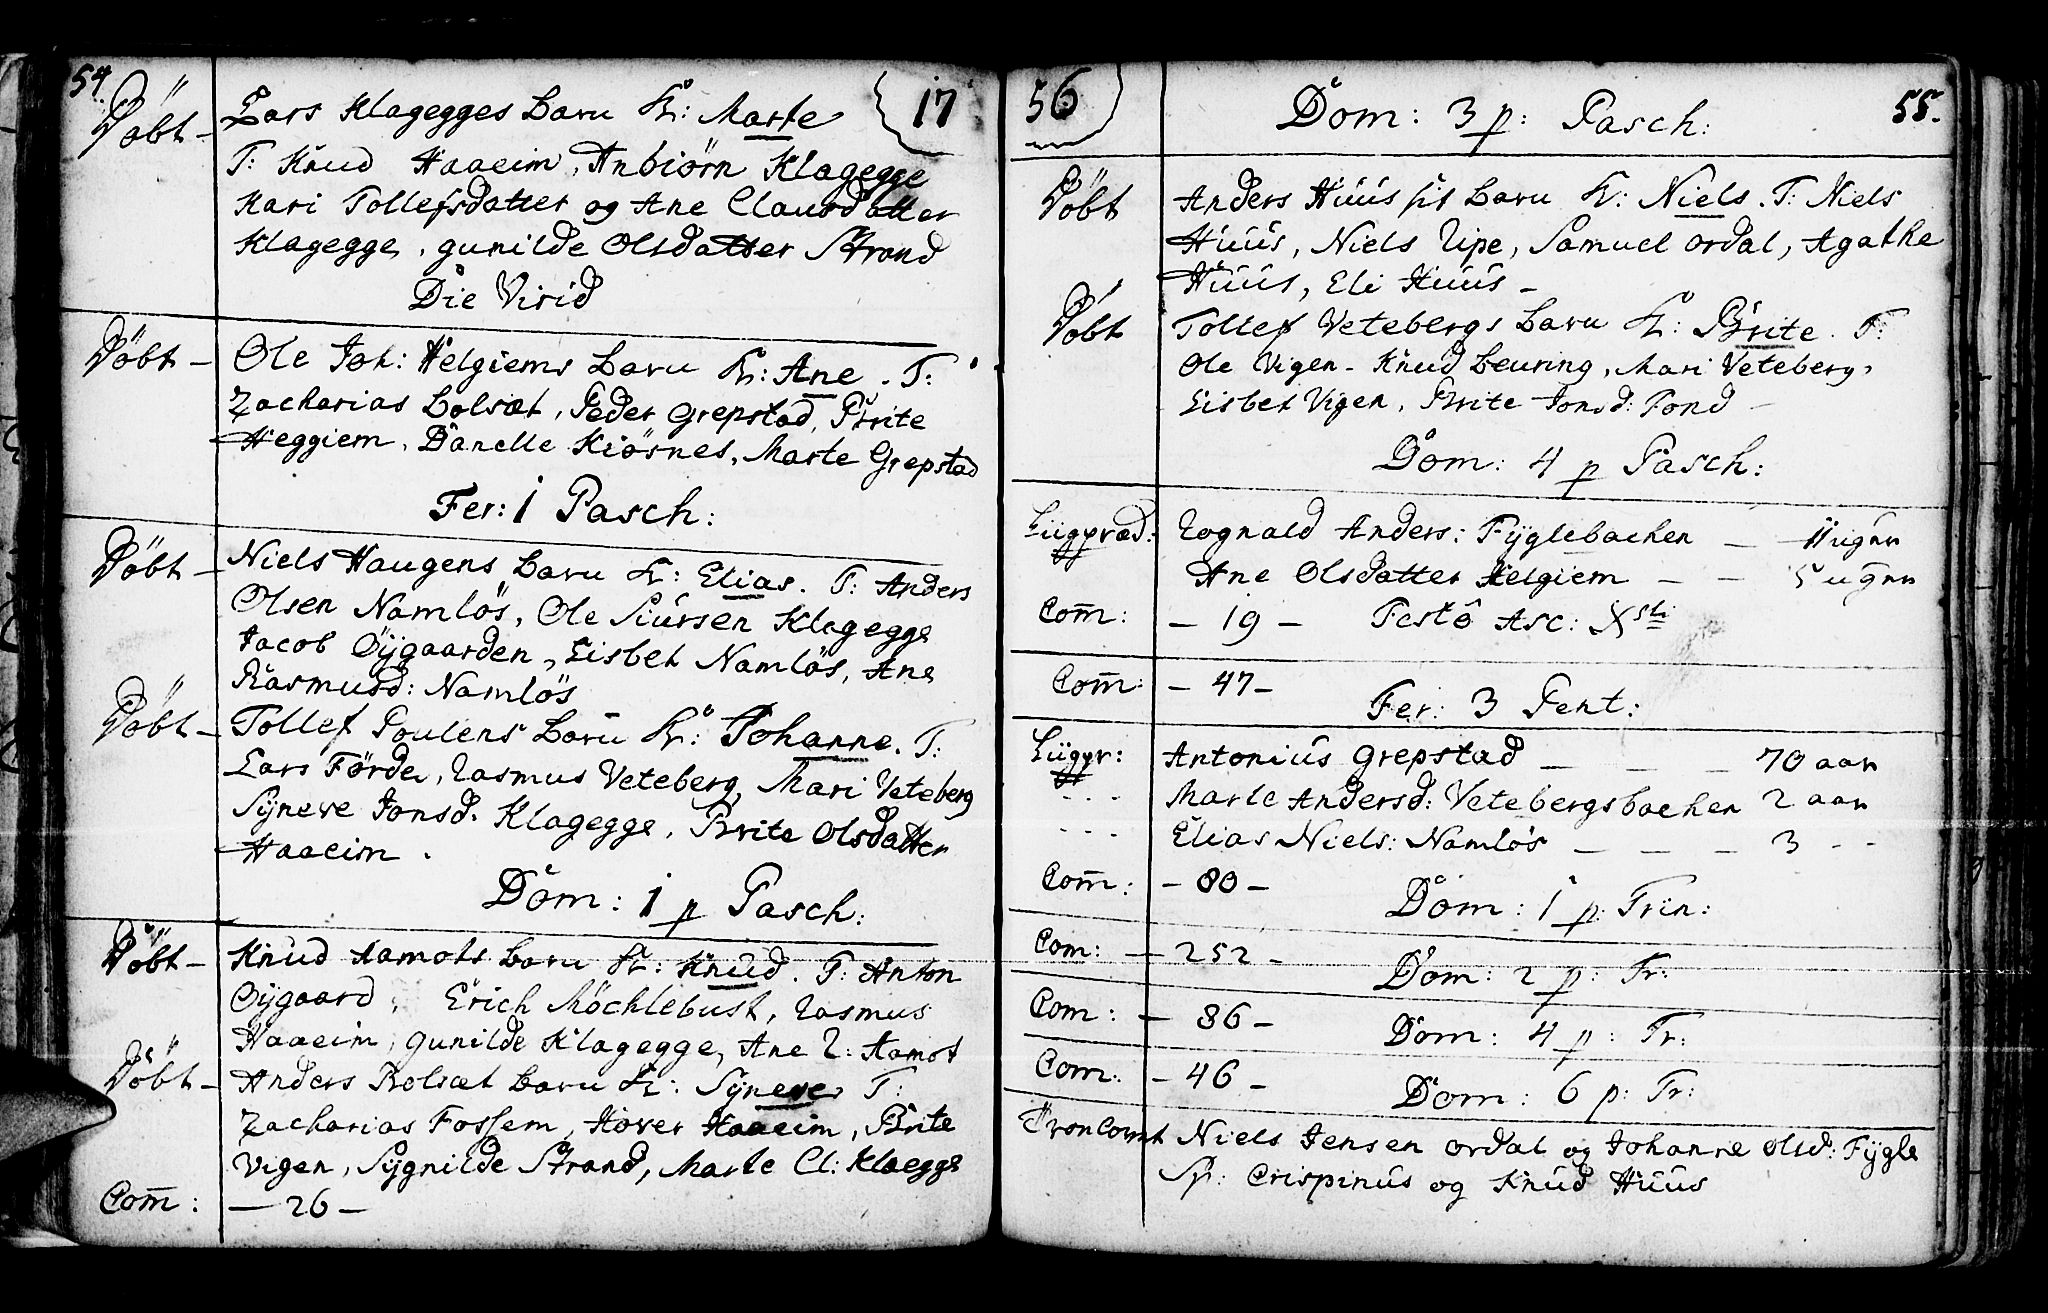 54.
17
Döbt - Lars Klagegges barn K: Marte
T: Knud Haaeim, Anbiörn Klagegge
Kari Tollefsdatter og Ane Clausdatter
Klagegge, gunilde Olsdatter Strand
Die Virid
Döbt - Ole Joh: Helgiems barn K: Ane. T:
Zacharias Bolsæt, Peder Grepstad, Brite
Heggiem, Danelle Kiösnes, Marte Grepstad
Fer: 1 Pasch:
Döbt - Niels Haugens barn K: Elias. T: Anders
Olsen Namlös, Ole Siursen Klagegge
Jacob Öygaarden, Lisbet Namlös, Ane
Rasmusd: Namlös
Döbt - Tollef Poulens barn K: Johanne. T:
Lars Förde, Rasmus Veteberg, Mari Veteberg
Syneve Jonsd. Klagegge, Brite Olsdatter
Haaeim.
Dom: 1 p Pasch:
Döbt - Knud Aamots barn K: Knud. T: Anton
Öygaard, Erich Möchlebust, Rasmus
Haaeim, gunilde Klagegge, Ane R: Aamot
Döbt - Anders Bolsæt barn K: Syneve T:
Zacharias Fossem, Hover Haaeim, Brite
Vigen, Sygnilde Strand, Marte Cl: Klaegge
Com̄: - 26 -
56
55.
Dom: 3 p: Pasch:
Döbt Anders Huus sit barn K: Niels. T: Niels
Huus, Niels Ripe, Samuel Ordal, Agathe
Huus, Eli Huus -
Döbt Tollef Vetebergs barn K: Brite. T:
Ole Vigen - Knud Beuring, Mari Veteberg,
Lisbet Vigen, Brite Jonsd: Fond -
Dom: 4 p Pasch:
Liigpræd: Rognald Anders: Fyglebachen - 11 ugrr
Ane Olsdatter Helgiem - - 5 ugrr
Com̄: - 19 - Festo Asc: Xsti
Com̄: - 47 -
Fer: 3 Pent:
Liigpr: Antonius Grepstad - - - 70 aar
- - - Marte Andersd: Vetebergsbachen 2 aar
- - - Elias Niels: Namlös - - - 3 - -
Com̄: - 80 - Dom: 1 p: Trin:
Com: - 252 - Dom: 2 p: Tr:
Com: - 86 - Dom: 4 p: Tr:
Com: - 46 - Dom: 6 p: Tr:
Niels Jensen Ordal og Johanne Olsd: Fygle
Sp: Crispinus og Knud Huus